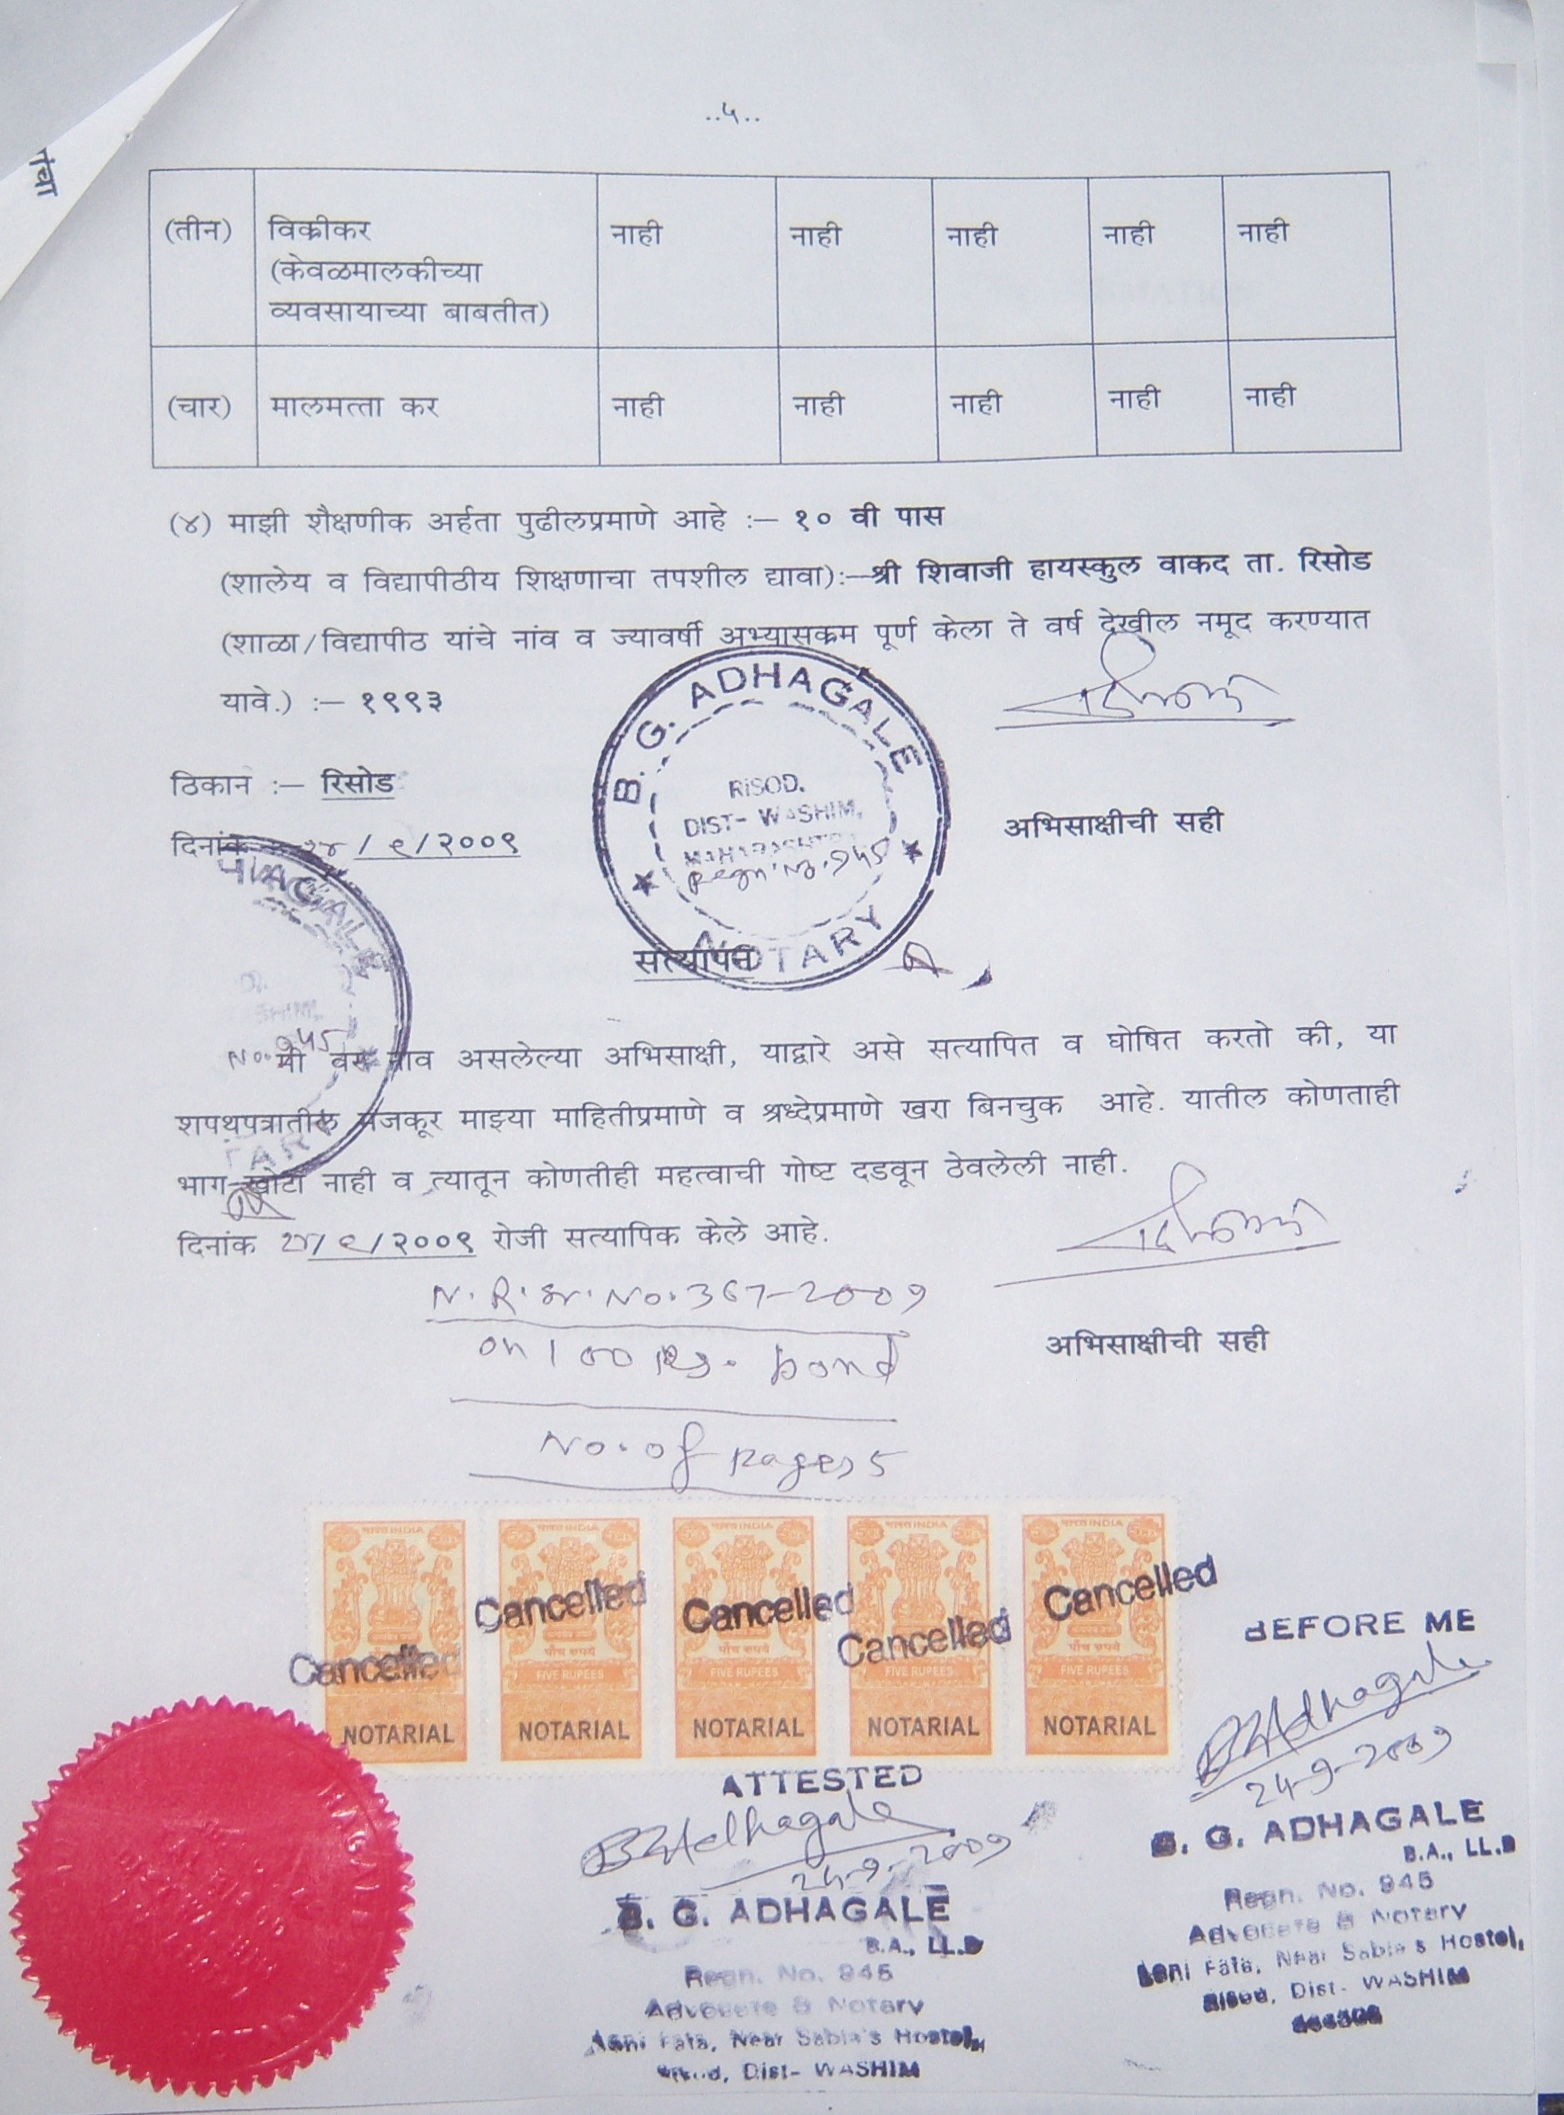 ..५..
तांचा
(तीन) विक्रीकर नाही नाही नाही नाही नाही
(केवळमालकीच्या
व्यवसायाच्या बाबतीत)
(चार) मालमत्ता कर नाही नाही नाही नाही नाही
(४) माझी शैक्षणीक अर्हता पुढीलप्रमाणे आहे :– १० वी पास
(शालेय व विद्यापीठीय शिक्षणाचा तपशील द्यावा):–श्री शिवाजी हायस्कुल वाकद ता. रिसोड
(शाळा/विद्यापीठ यांचे नांव व ज्यावर्षी अभ्यासक्रम पूर्ण केला ते वर्ष देखील नमूद करण्यात
यावे.) :– १९९३
B. G. ADHAGALE
RISOD.
DIST- WASHIM,
MAHARASHTRA
Regn. No. 945
NOTARY
ठिकान :– रिसोड
अभिसाक्षीची सही
दिनांक २४/९/२००९
सत्यापन
No. 945
मी वर नाव असलेल्या अभिसाक्षी, याद्वारे असे सत्यापित व घोषित करतो की, या
शपथपत्रातील मजकूर माझ्या माहितीप्रमाणे व श्रध्देप्रमाणे खरा बिनचुक आहे. यातील कोणताही
भाग खोटा नाही व त्यातून कोणतीही महत्वाची गोष्ट दडवून ठेवलेली नाही.
दिनांक २४/९/२००९ रोजी सत्यापिक केले आहे.
N. R. Sr. No. 367-2009
on 100 Rs. bond
अभिसाक्षीची सही
No. of pages 5
भारत INDIA भारत INDIA भारत INDIA भारत INDIA भारत INDIA
Cancelled Cancelled Cancelled Cancelled Cancelled
पाँच रुपये पाँच रुपये पाँच रुपये पाँच रुपये
FIVE RUPEES FIVE RUPEES FIVE RUPEES FIVE RUPEES
NOTARIAL NOTARIAL NOTARIAL NOTARIAL NOTARIAL
ATTESTED
BGAdhagale
24-9-2009
B. G. ADHAGALE
B.A., LL.B
Regn. No. 945
Advocate & Notary
Loni Fata, Near Sabla's Hostel,
Risod, Dist- WASHIM
BEFORE ME
BGAdhagale
24-9-2009
B. G. ADHAGALE
B.A., LL.B
Regn. No. 945
Advocate & Notary
Loni Fata, Near Sabla's Hostel,
Risod, Dist- WASHIM